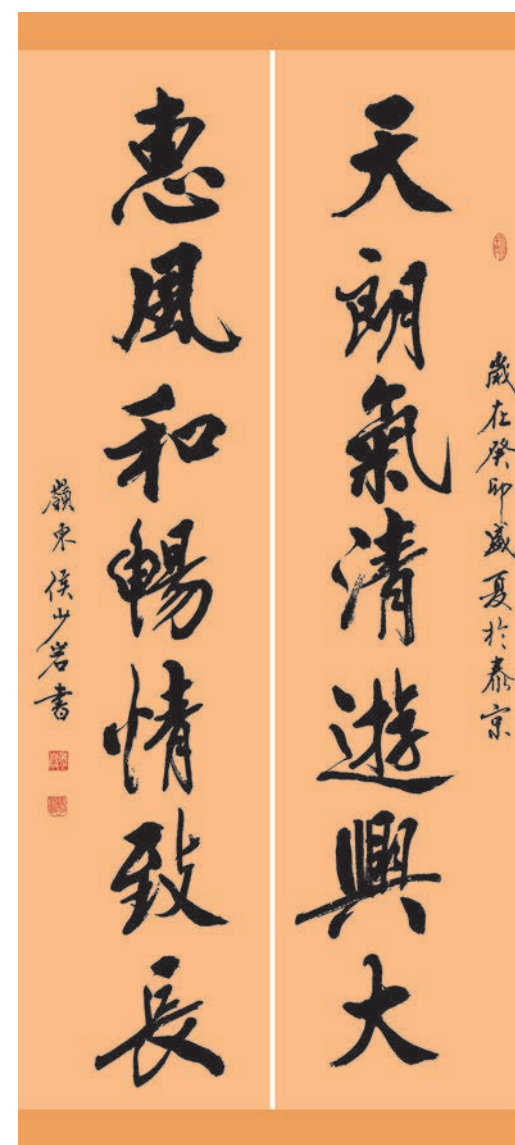 歲在癸卯盛夏於泰京
天朗氣清遊興大
惠風和暢情致長
嶺東侯少岩書